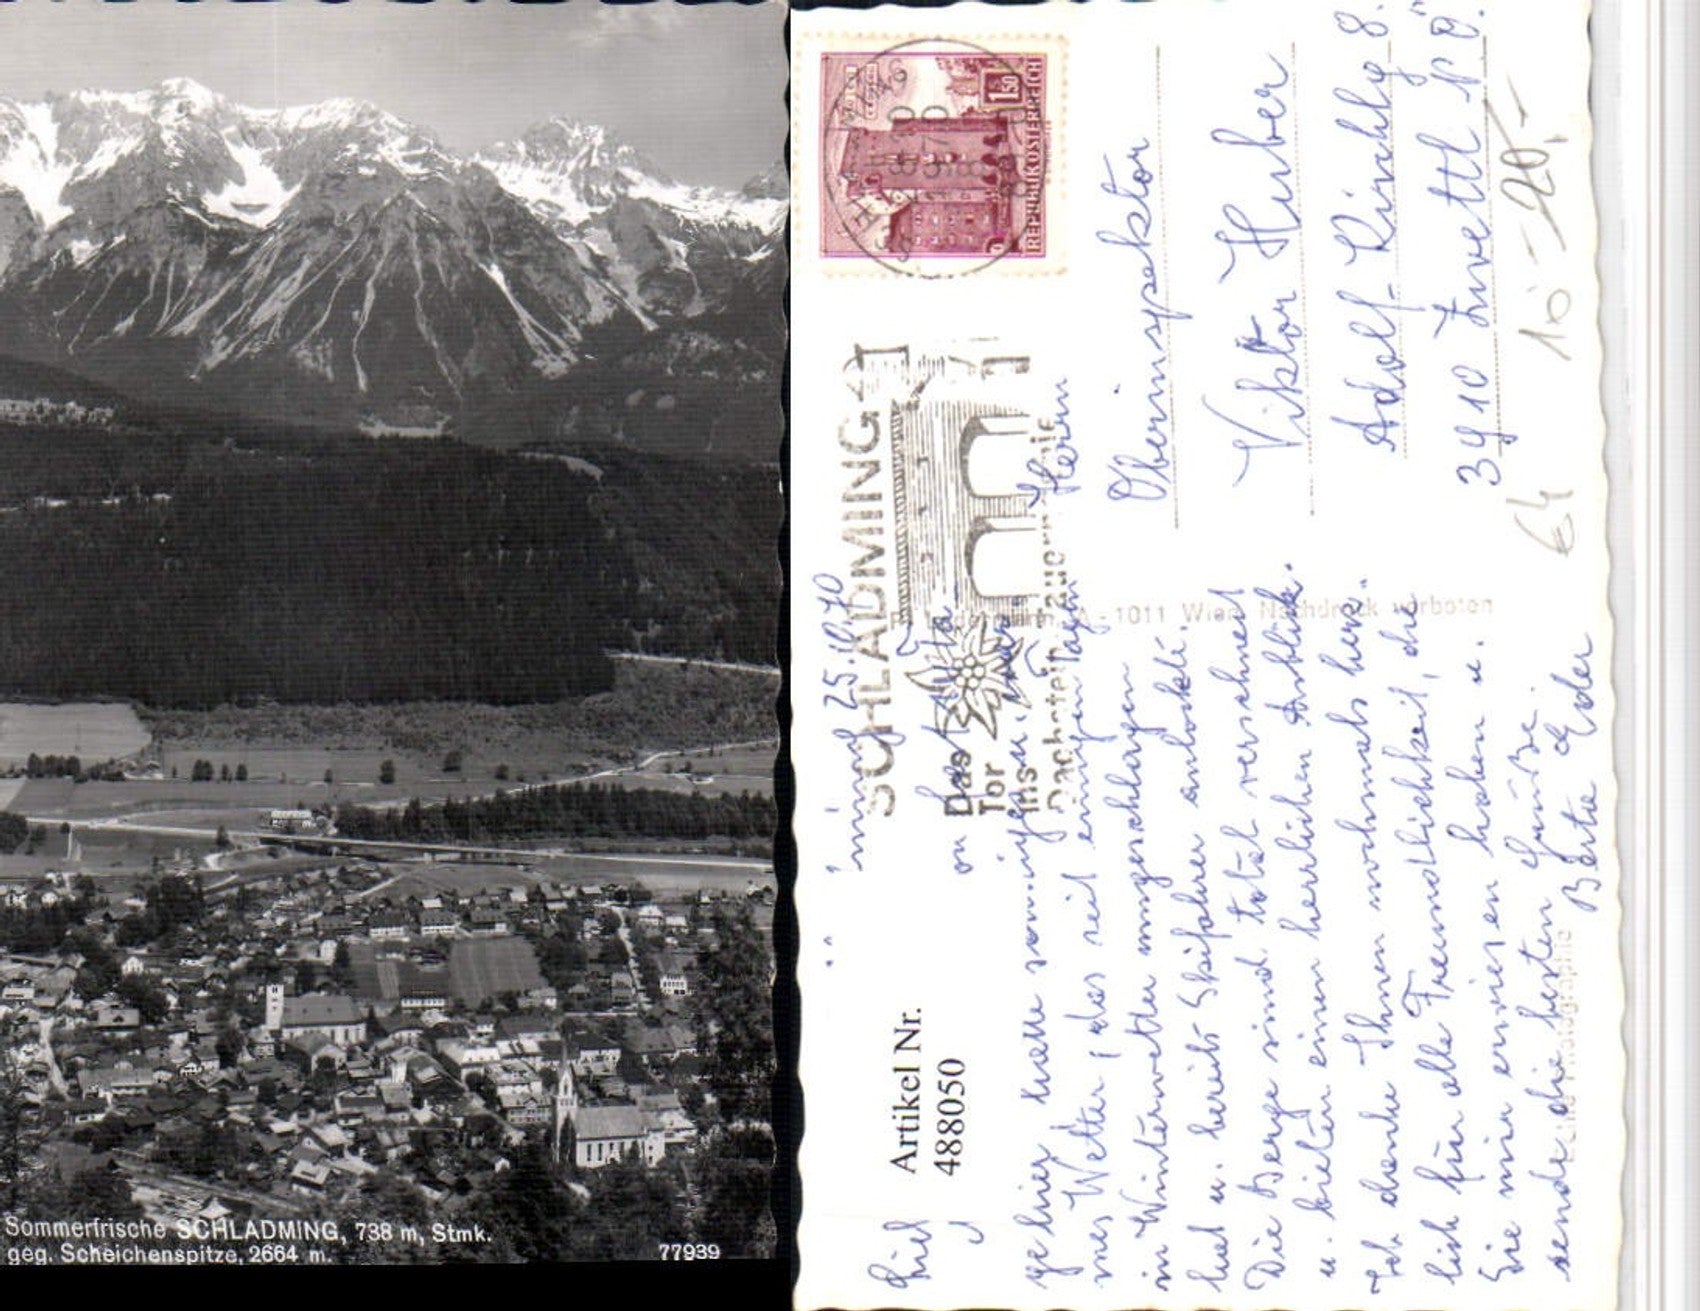 Sommerfrische SCHLADMING, 738 m, Stmk.
geg. Scheichenspitze, 2664 m.
77939
REPUBLIK ÖSTERREICH
1.50
SCHLADMING
Das
Tor
ins
Dachstein
Herrn
Oberinspektor
Viktor Huber
Adolf-Kirchlg 8.
3910 Zwettl N.Ö.
10 - 20,-
A-1011 Wien Nachdruck verboten
Artikel Nr.
488050
25.10.70
ge hier hatte sonniges u.
nes Wetter, das seit einigen Tagen
in Winterwetter umgeschlagen
hat u. bereits Skifahrer anlockt.
Die Berge sind total verschneit
u. bieten einen herrlichen Anblick.
Ich danke Ihnen nochmals herz-
lich für alle Freundlichkeit, die
Sie mir erwiesen haben u.
sende die besten Grüße.
Berta Eder